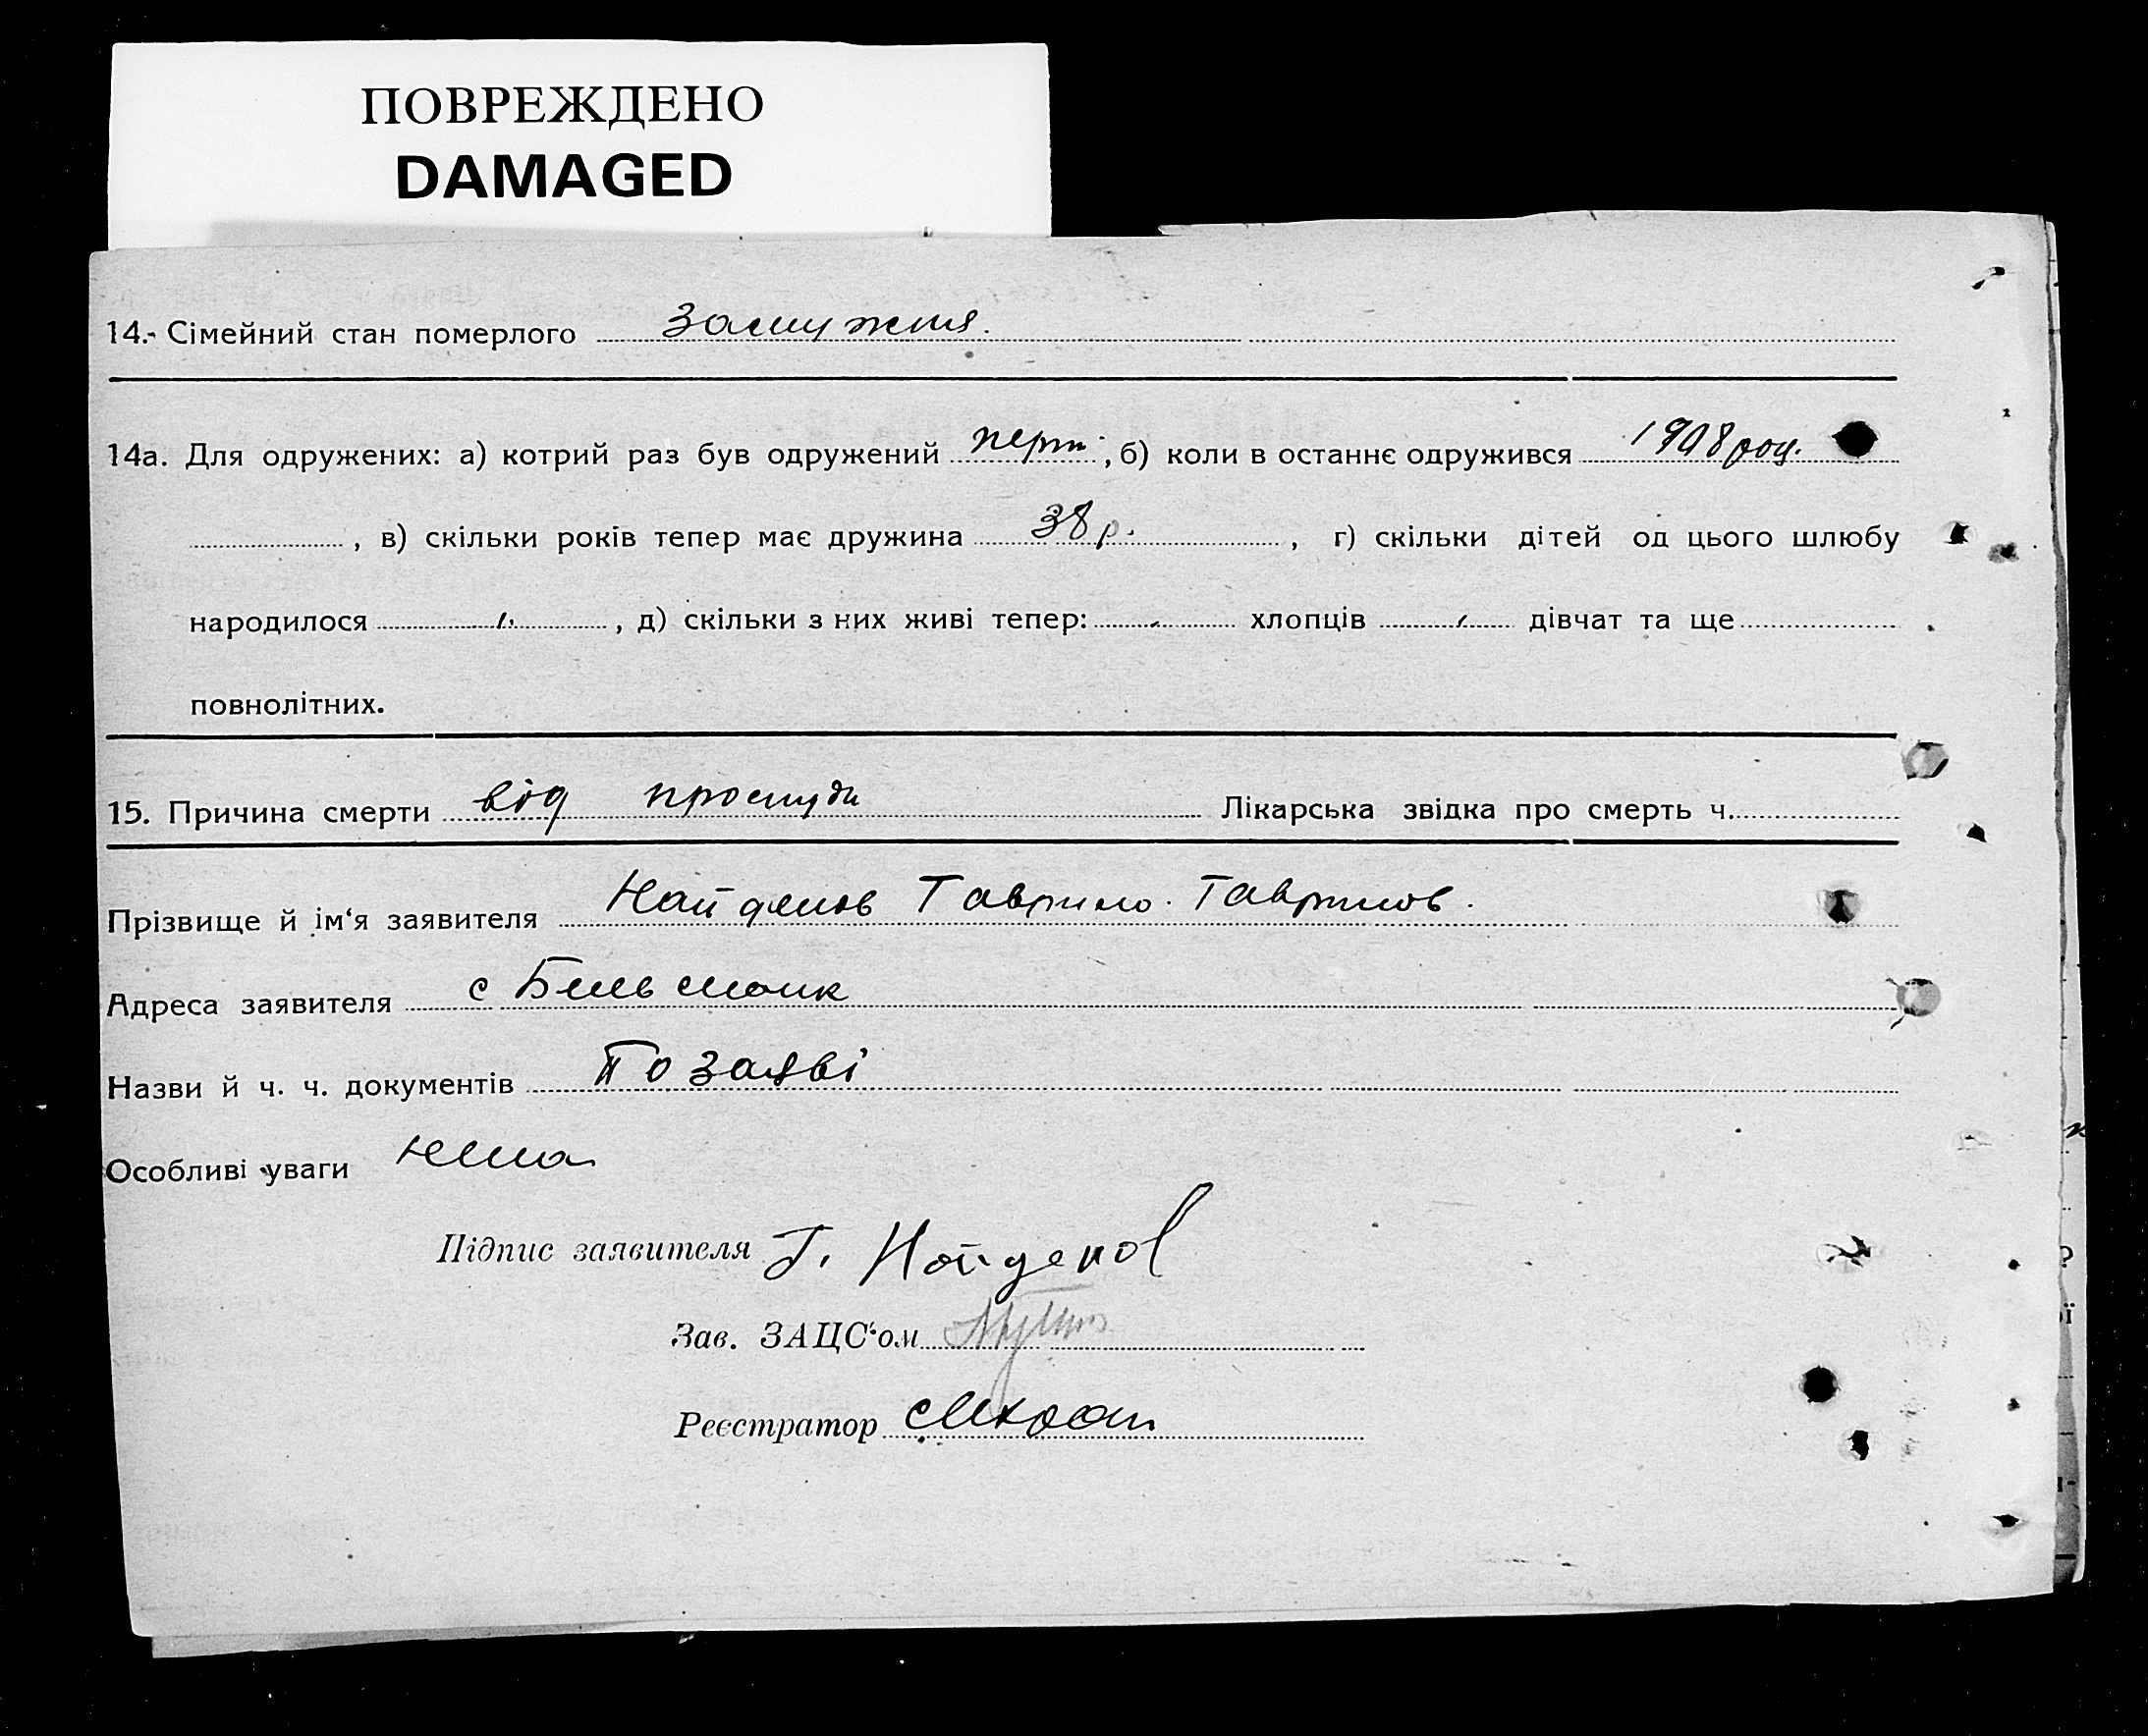 ПОВРЕЖДЕНО
DAMAGED
14. Сімейний стан померлого замужня.
14а. Для одружених: а) котрий раз був одружений перш, б) коли в останнє одружився 1908 роц.
, в) скільки років тепер має дружина 38 р. , г) скільки дітей од цього шлюбу
народилося , д) скільки з них живі тепер: хлопців дівчат та ще
повнолітних.
15. Причина смерти від простуди Лікарська звідка про смерть ч.
Прізвище й ім'я заявителя Найденов Гаврило Гаврилов.
Адреса заявителя с Бильманк
Назви й ч. ч. документів По заяві
Особливі уваги нема
Підпис заявителя Г. Найденов
Зав. ЗАЦС'ом
Реєстратор